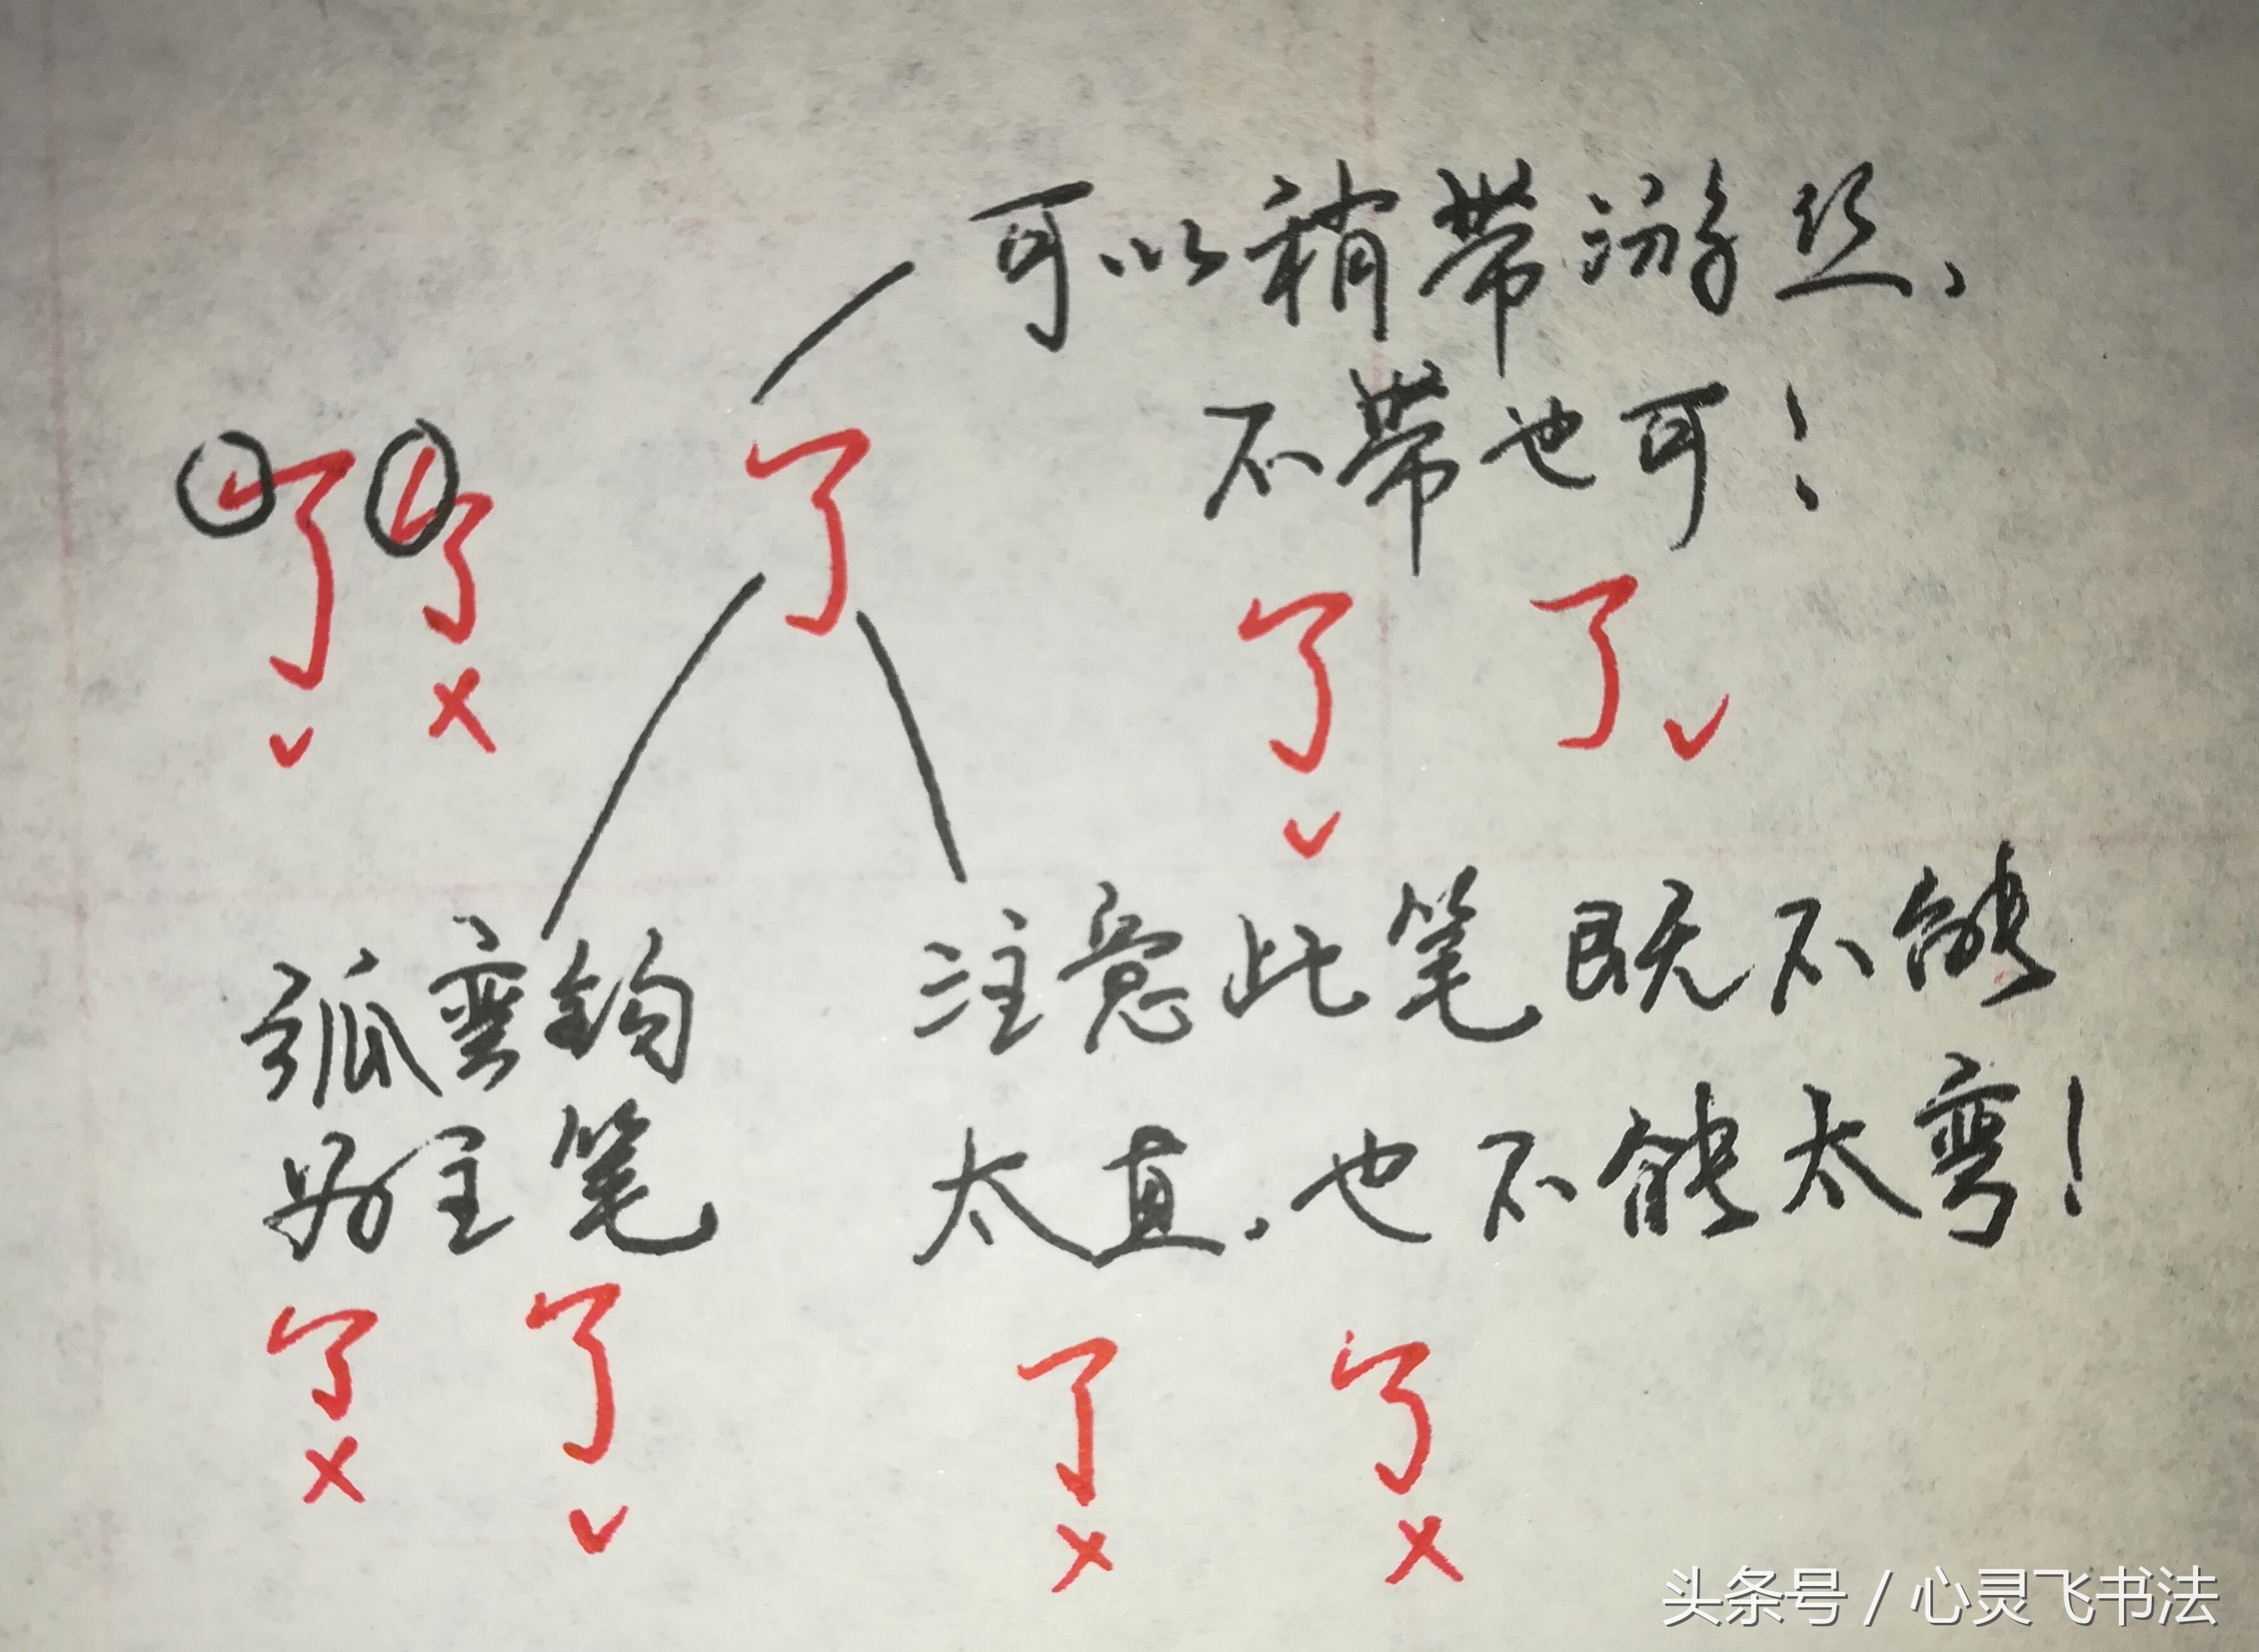 可以稍带游丝、
不带也可！
了 了 了
了 了
弧弯钩
为主笔
注意此笔既不能
太直、也不能太弯！
了 了 了 了
头条号 / 心灵飞书法